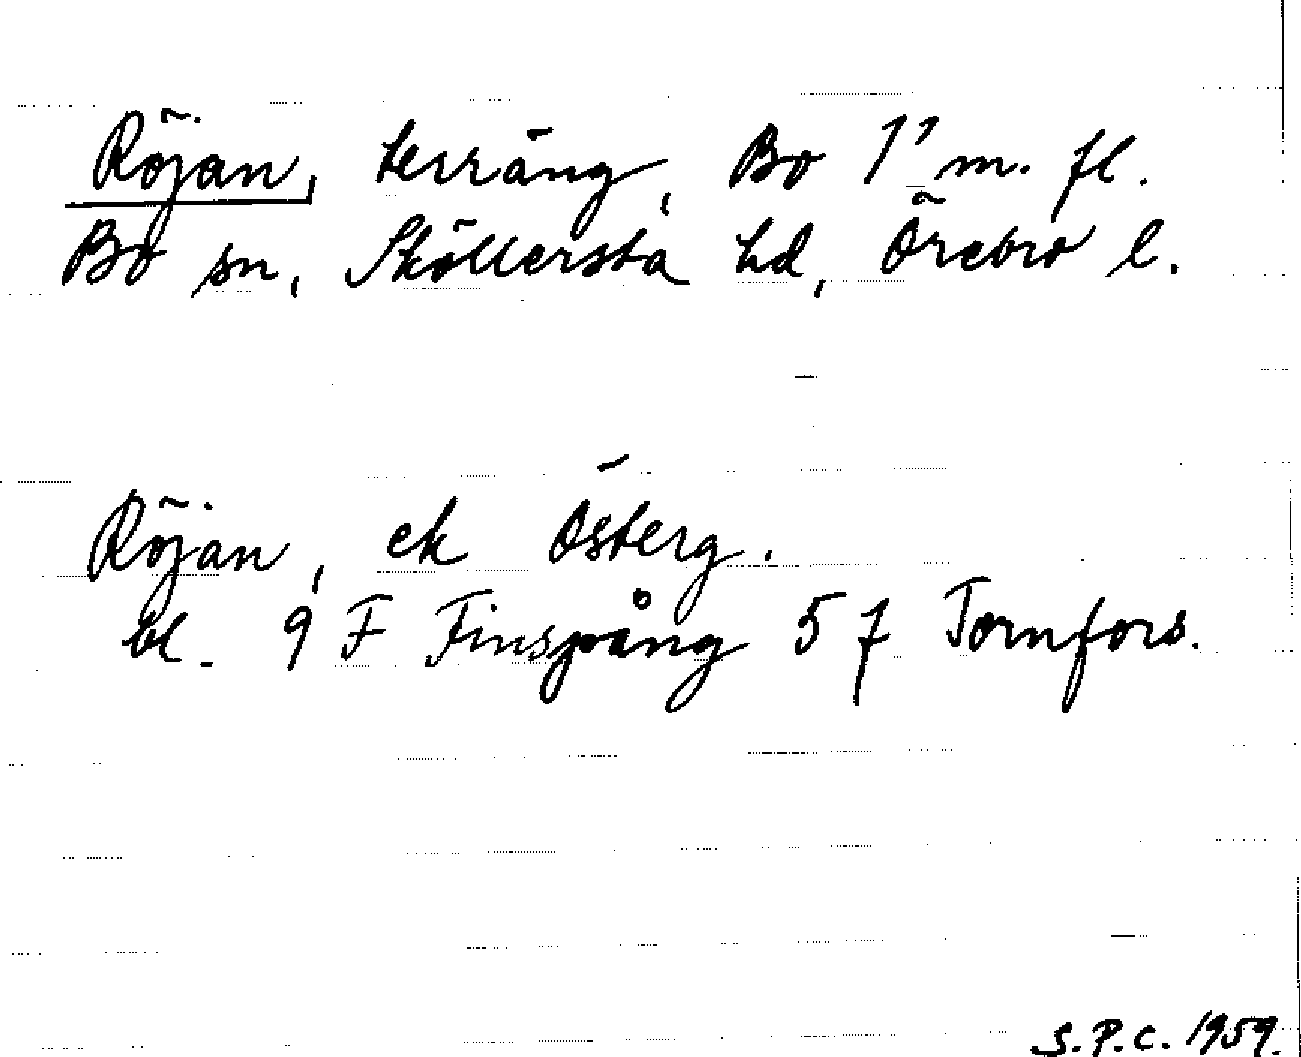 Röjan, terräng, Bo 1⁷ m. fl.
Bo sn, Sköllersta hd, Örebro l.
Röjan, ek Österg.
bl. 9 F Finspång 5 f Tornfors.
S.P.C. 1959.